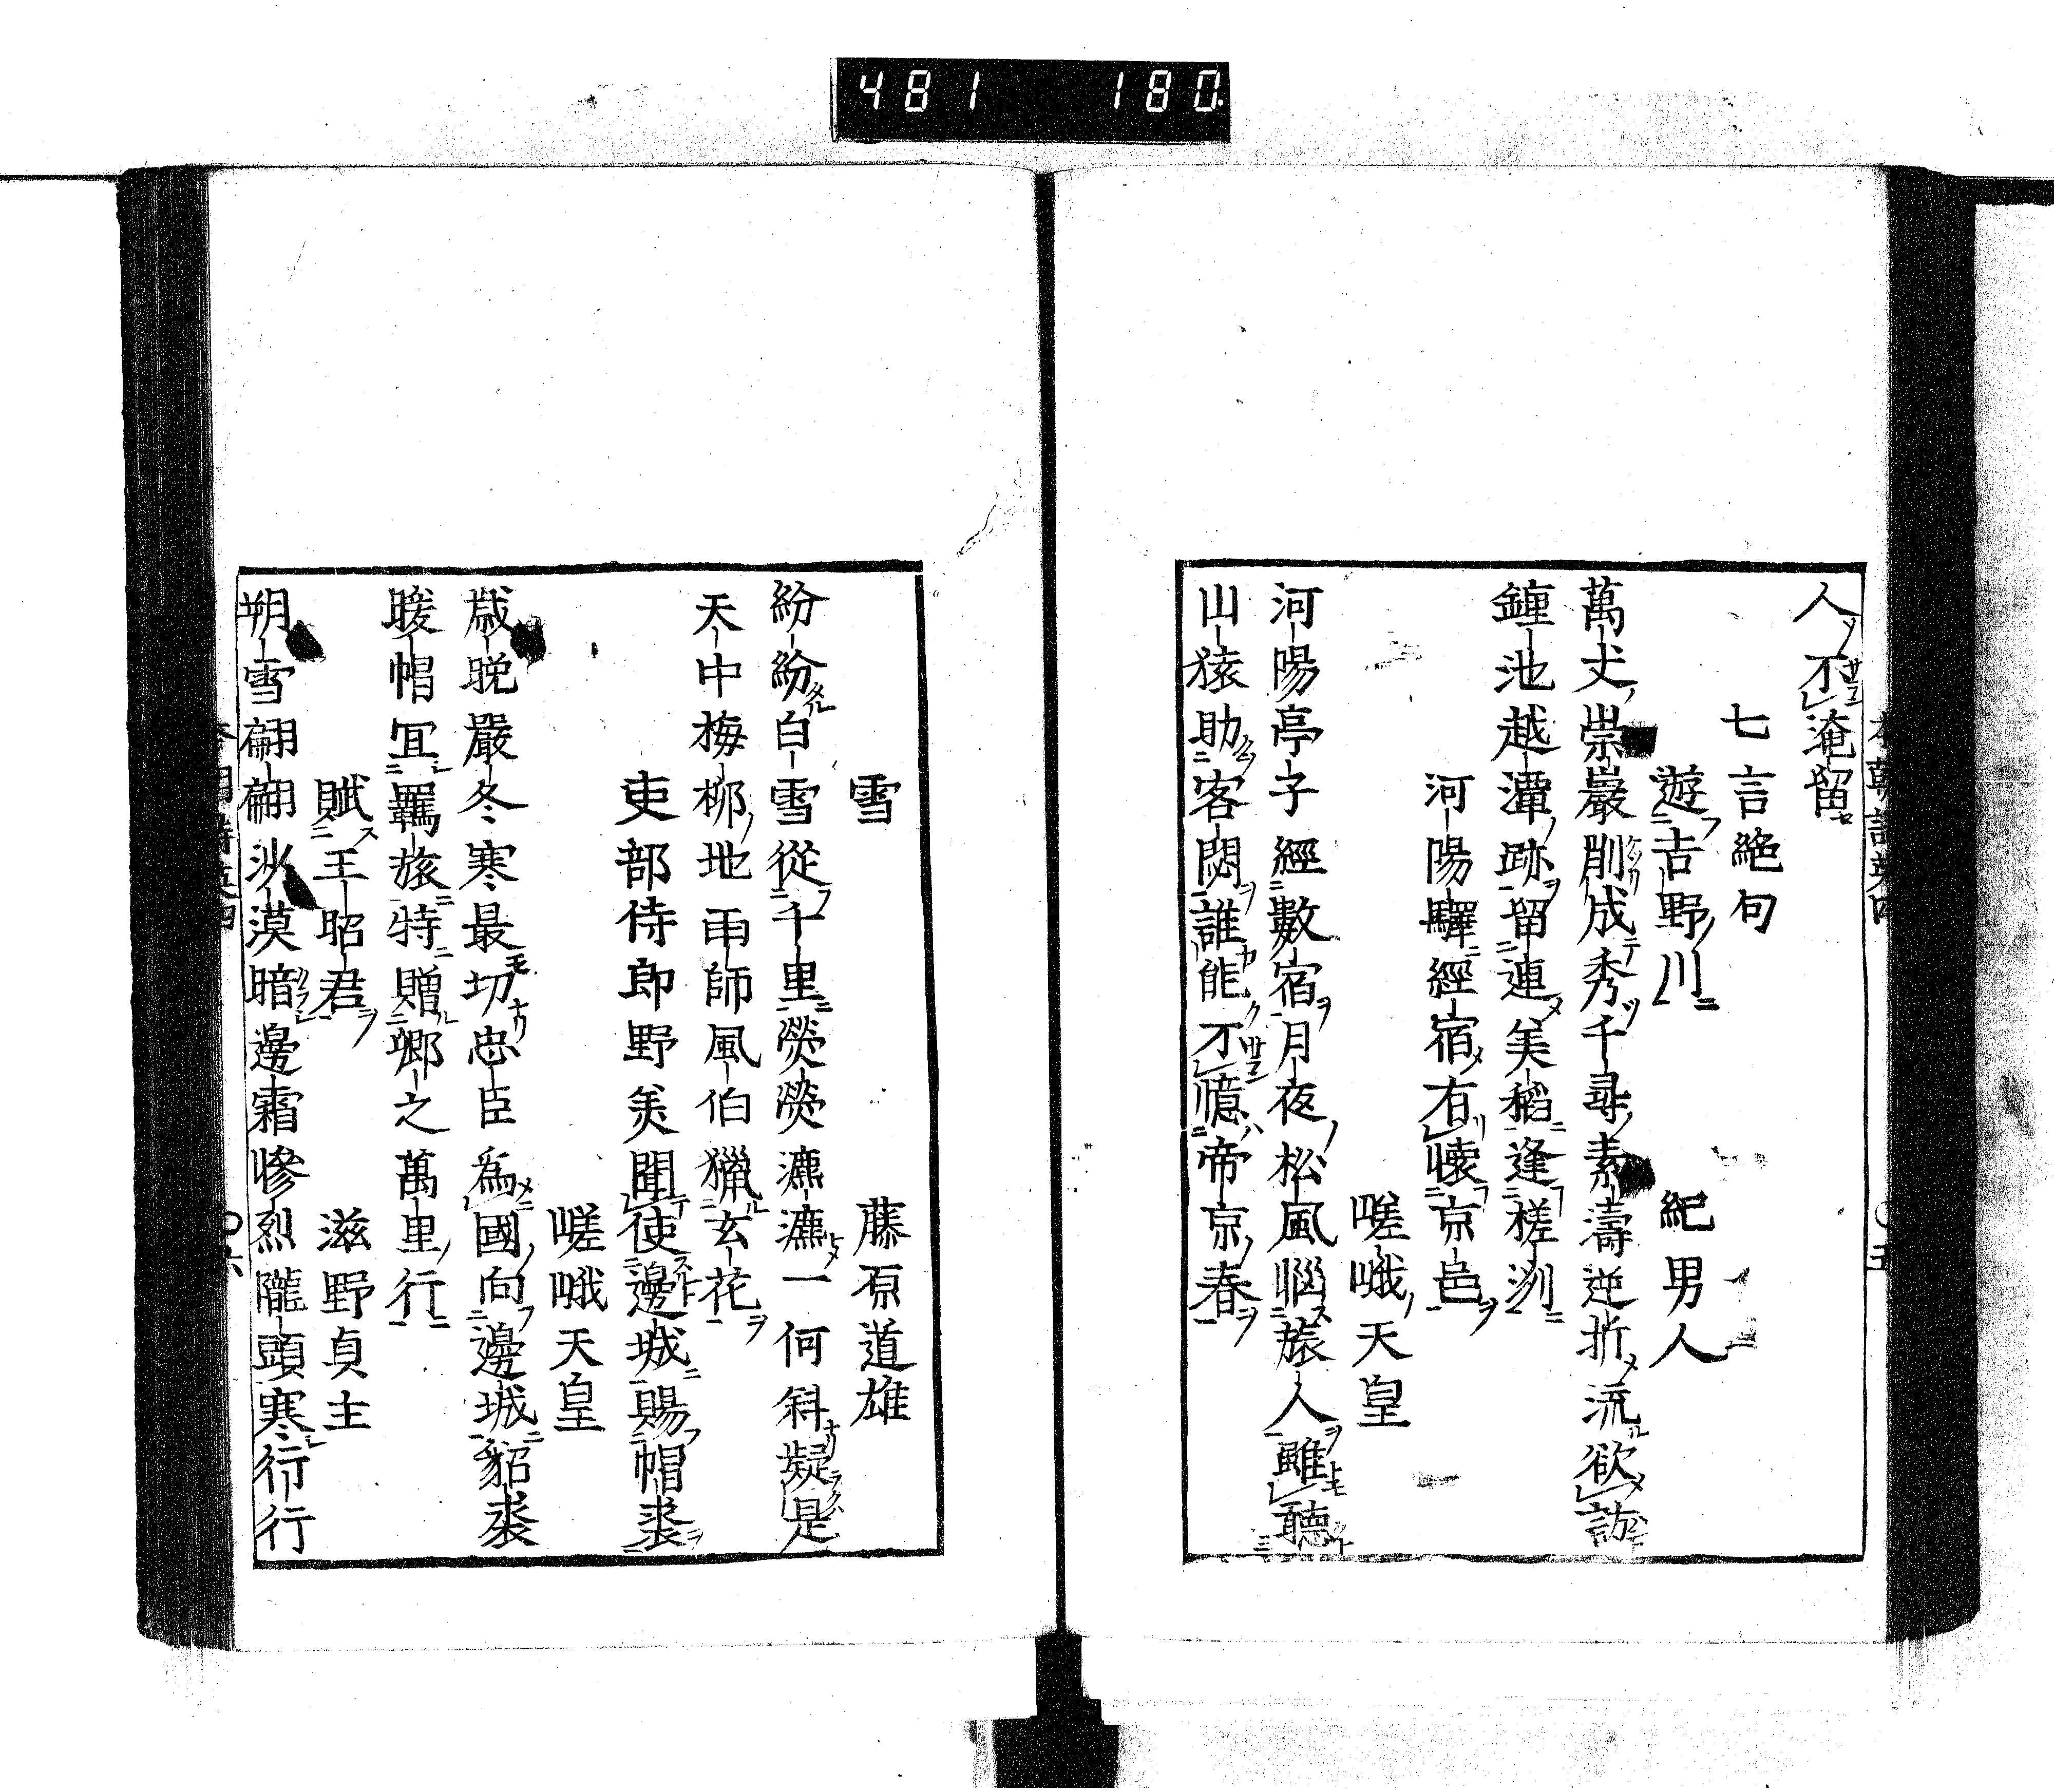 481 180
人不淹留
七言絶句
遊吉野川 紀男人
萬丈崇巖削成秀千尋素濤逆折流欲訪
鍾池越潭跡留連美稻逢槎洲
河陽驛經宿有懷京邑
嵯峨天皇
河陽亭子經數宿月夜松風惱旅人雖聽
山猿助客閟誰能不憶帝京春
雪 藤原道雄
紛紛白雪從千里熒熒瀌瀌一何斜凝是
天中梅柳地雨師風伯獵玄花
吏部侍郎野美聞使邊城賜帽裘
嵯峨天皇
歳晩嚴冬寒最切忠臣爲國向邊城貂裘
暖帽宜羈旅特贈卿之萬里行
賦王昭君 滋野貞主
朔雪翩翩沙漠暗邊霜慘烈隴頭寒行行